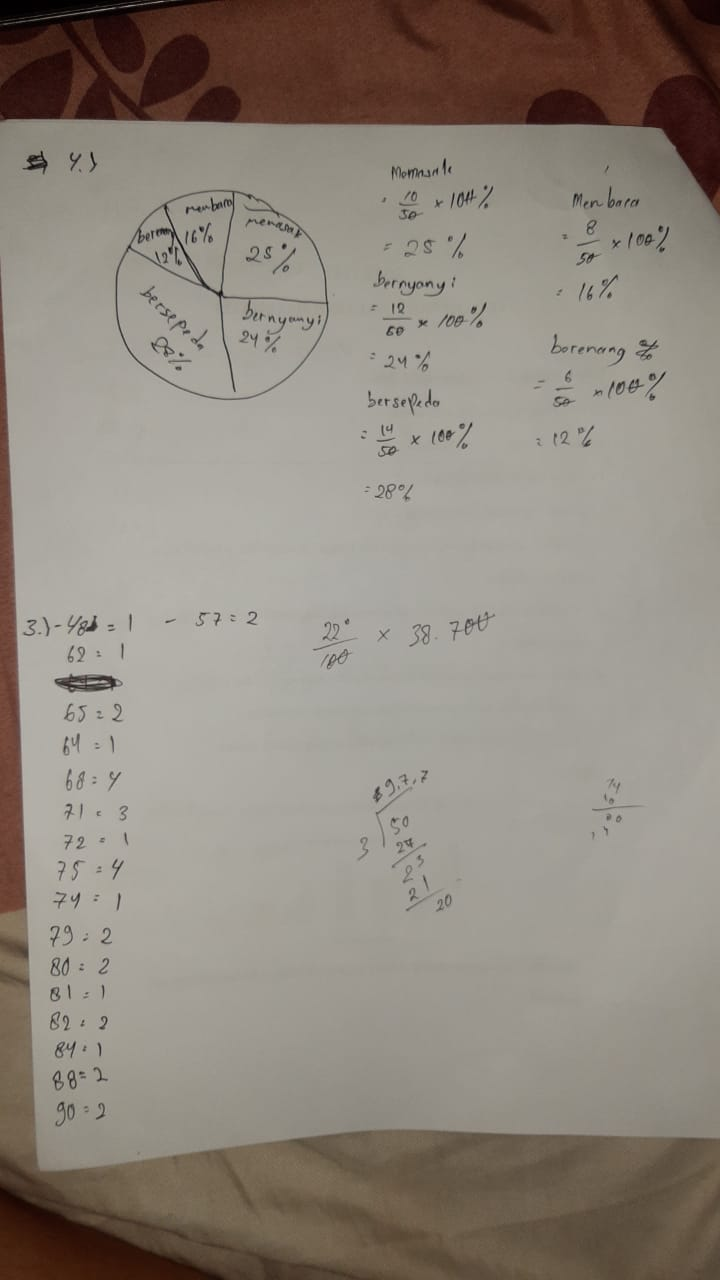 4.)
membaca
16%
memasak
25%
berenang
12%
bernyanyi
24%
bersepeda
28%
Memasak
= 10/50 × 100%
= 25 %
bernyanyi
= 12/50 × 100%
= 24 %
bersepeda
= 14/50 × 100%
= 28%
Membaca
= 8/50 × 100%
= 16%
berenang
= 6/50 × 100%
= 12 %
3.) - 48 = 1 - 57 = 2
62 = 1
65 = 2
64 = 1
68 = 4
71 = 3
72 = 1
75 = 4
74 = 1
79 = 2
80 = 2
81 = 1
82 = 2
84 = 1
88 = 2
90 = 2
22/100 × 38.700
9,7,7
3 50
27
23
21
20